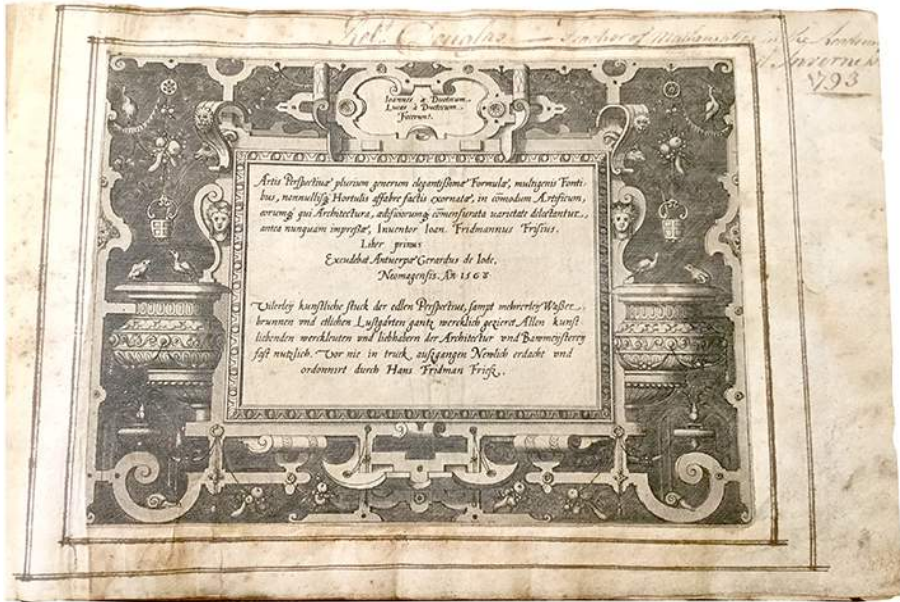 Robt. Douglas — Teacher of Mathematics in the Academy
Inverness
1793
Ioannes à Duetecum
Lucas à Duetecum
Fecerunt.
Artis Perspectivæ plurium generum elegantissimæ Formulæ, multigenis Fonti-
bus, nonnullisq; Hortulis affabre factis exornatæ, in comodum Artificum,
eorumq; qui Architectura, ædificiorumq; comensurata varietate delectantur,
antea nunquam impressæ, Inventor Ioan. Fridmannus Frisius.
Liber primus
Excudebat Antverpæ Gerardus de Iode,
Neomagensis. Añ 1568
Vilerley kunstliche stuck der edlen Perspective, sampt mehrerley Waßer
brunnen vnd etlichen Lustgärten gantz wercklich gezieret Allen kunst
liebenden werckleuten vnd liebhabern der Architectur vnd Bawmeysteren
fast nutzlich. Vor nie in truck außgangen Newlich erdacht vnd
ordonnirt durch Hans Fridman Frieß.